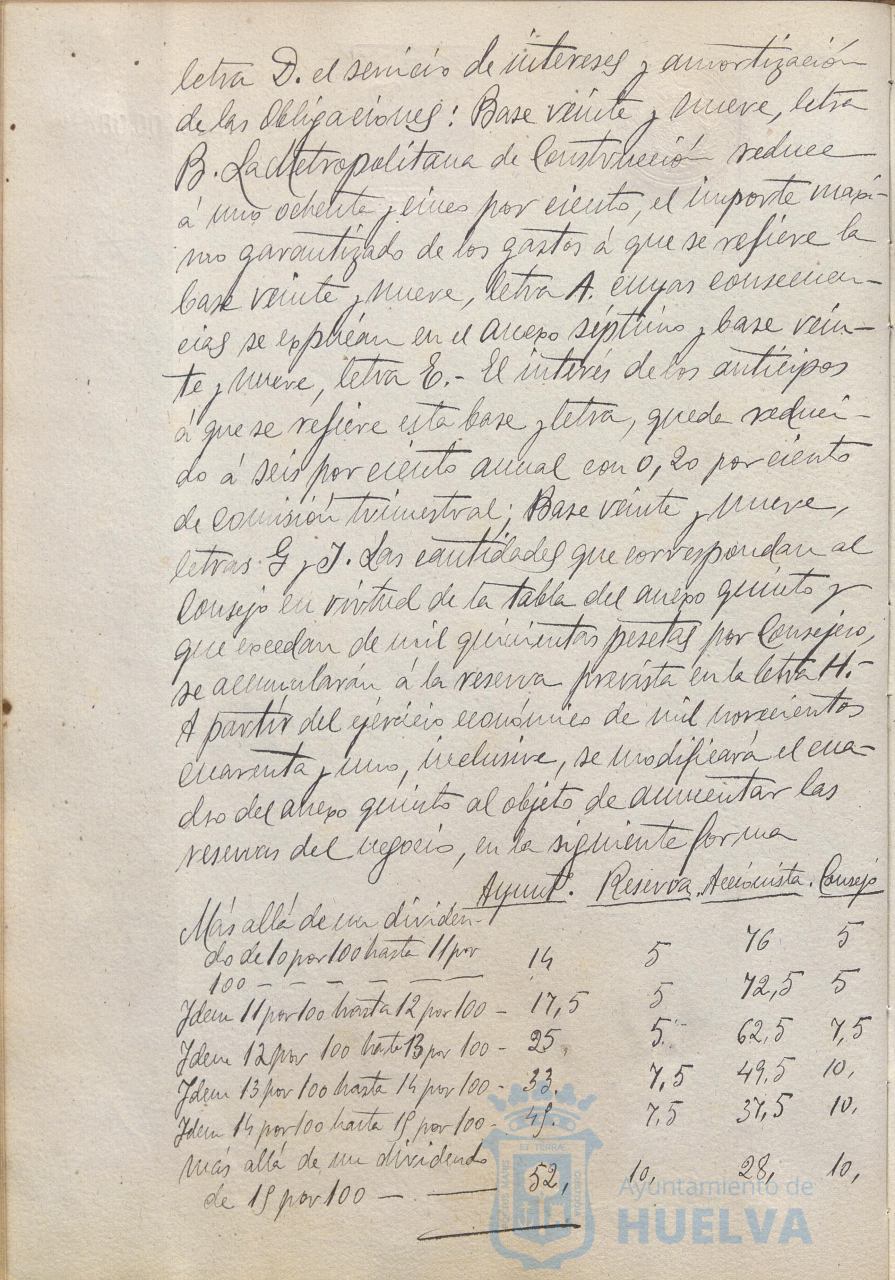 letra D. el servicio de intereses y amortización
de las Obligaciones: Base veinte y nueve, letra
B. La Metropolitana de Construcción reduce
á uno ochenta y cinco por ciento, el importe maxi-
mo garantizado de los gastos á que se refiere la
base veinte y nueve, letra A. cuyas consecuen-
cias se explican en el anexo séptimo y base vein-
te y nueve, letra E.- El interés de los anticipos
á que se refiere esta base y letra, queda reduci-
do á seis por ciento anual con 0,20 por ciento
de comisión trimestral; Base veinte y nueve,
letras G y J. Las cantidades que correspondan al
Consejo en virtud de la tabla del anexo quinto y
que excedan de mil quinientas pesetas por Consejero,
se acumularán á la reserva prevista en la letra H.-
A partir del ejercicio económico de mil novecientos
cuarenta y uno, inclusive, se modificará el cua-
dro del anexo quinto al objeto de aumentar las
reservas del negocio, en la siguiente forma
Ayunt.º Reserva. Accionista. Consejo
Más allá de un dividen-
do de 10 por 100 hasta 11 por
100 - - - - 14 5 76 5
Idem 11 por 100 hasta 12 por 100 - 17,5 5 72,5 5
Idem 12 por 100 hasta 13 por 100 - 25, 5. 62,5 7,5
Idem 13 por 100 hasta 14 por 100 - 33. 7,5 49,5 10,
Idem 14 por 100 hasta 15 por 100 - 45. 7,5 37,5 10,
más allá de un dividendo
de 15 por 100 - - 52, 10, 28, 10,
Ayuntamiento de
HUELVA